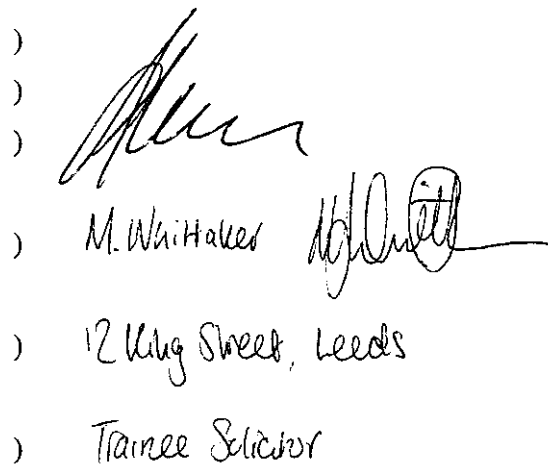 )
)
)
) M. Whittaker
) 12 King Street, Leeds
) Trainee Solicitor